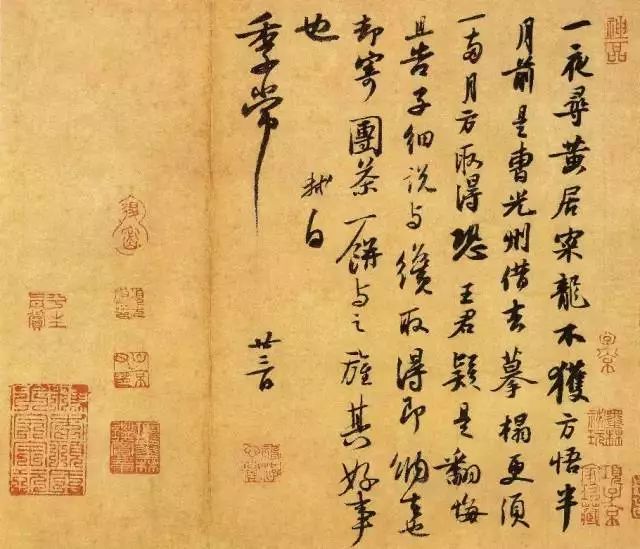 神品
一夜尋黃居寀龍不獲方悟半
月前是曹光州借去摹搨更須
一兩月方取得恐王君疑是翻悔
且告子細說與纔取得即納去也
却寄團茶一餅與之旌其好事
也
軾白
季常
廿三日
項子京家珍藏